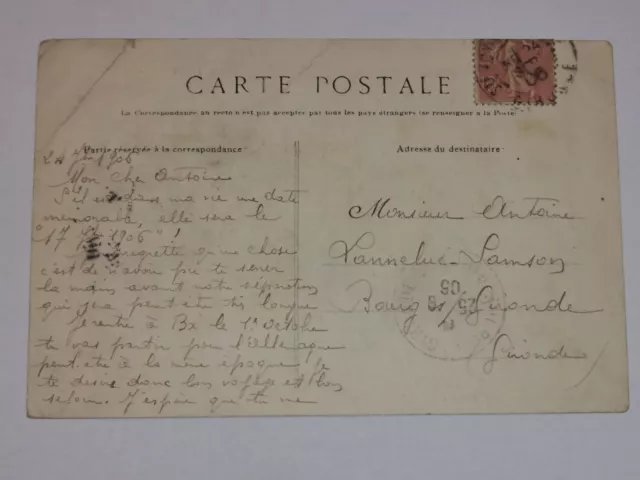 CARTE POSTALE
La Correspondance au recto n'est pas acceptée par tous les pays étrangers (se renseigner à la Poste)
Partie réservée à la correspondance
Adresse du destinataire
24 1906
Mon cher Antoine
S'il est dans ma vie une date
memorable, elle sera le
"17 1906" !
regrette qu'une chose
c'est de n'avoir pu te serrer
la main avant notre séparation
qui sera peut-etre très longue
Je rentre à Bx le 1er octobre
tu vas partir pour l'allemagne
peut-etre à la meme époque. Je
te desire donc bon voyage et bon
sejour. J'espère que tu me
Monsieur Antoine
Lanneluc-Samson
Bourg s/ Gironde
Gironde
25
05